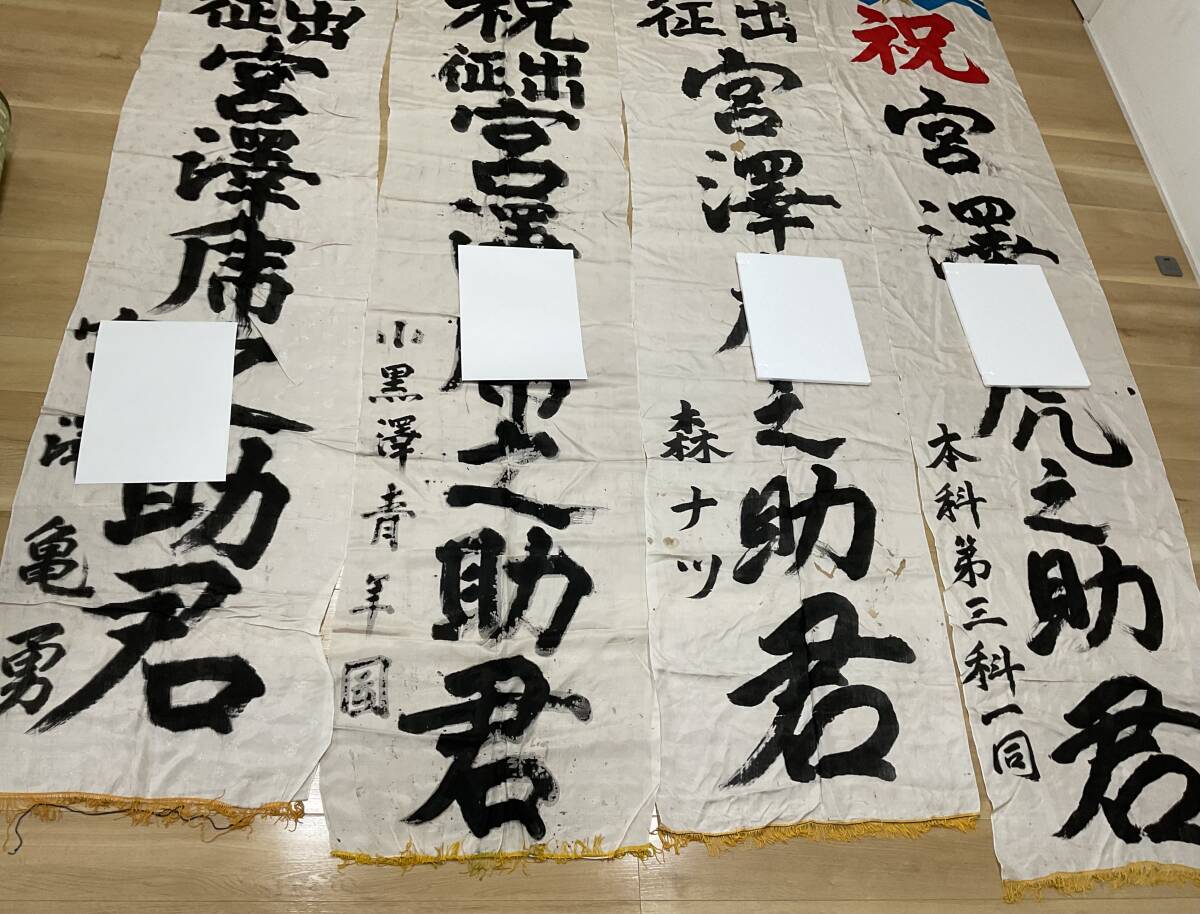 祝宮澤虎之助君
本科第三科一同
出征宮澤之助君
森ナツ
祝出征宮澤之助君
小黒澤青年團
出征宮澤乕之助君
亀勇